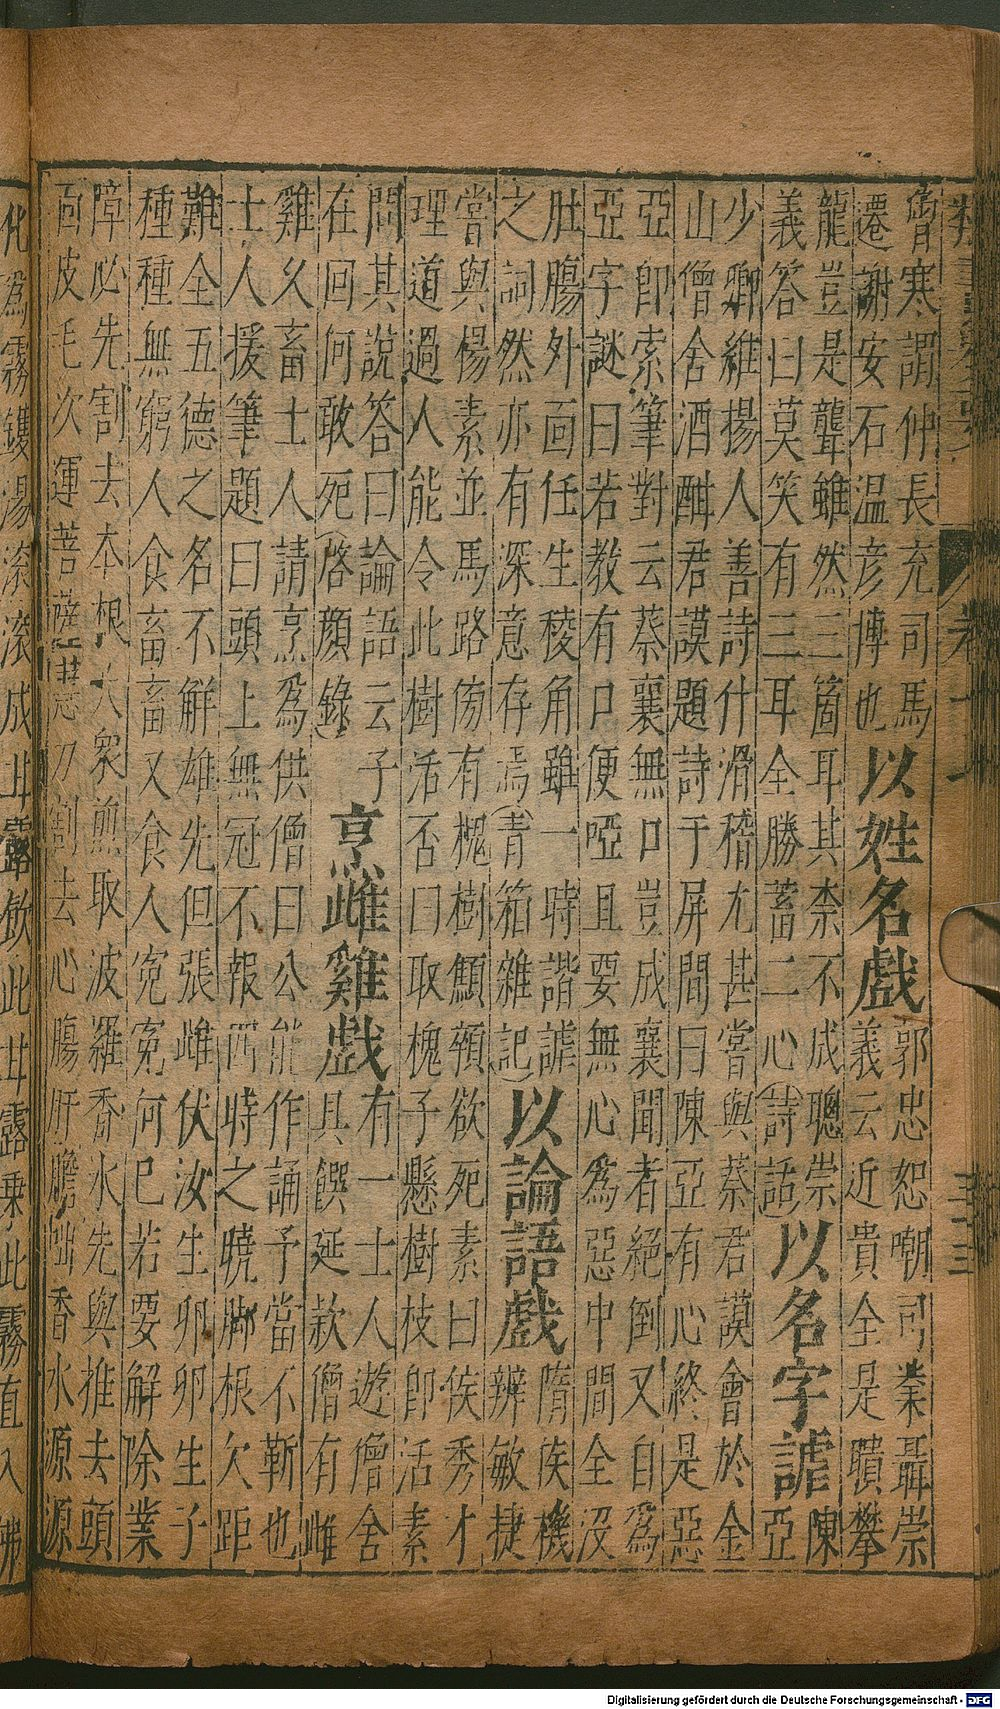 寒謂仲長充司馬
遷謝安石温彦博也
以姓名戲
郭忠恕嘲司業聶崇
義云近貴全是聵攀
龍豈是聾雖然三箇耳其柰不成聰崇
義答曰莫笑有三耳全勝蓄二心(詩話)
以名字謔
陳
亞
少卿維揚人善詩什滑稽尤甚嘗與蔡君謨會於金
山僧舍酒酣君謨題詩于屏間曰陳亞有心終是惡
亞即索筆對云蔡襄無口豈成襄聞者絕倒又自為
亞字謎曰若教有口便啞且要無心為惡中間全沒
肚腸外面任生稜角雖一時諧謔
之詞然亦有深意存焉(青箱雜記)
以論語戲
隋侯機
辨敏捷
嘗與楊素並馬路傍有槐樹顦顇欲死素曰侯秀才
理道過人能令此樹活否曰取槐子懸樹枝即活素
問其說答曰論語云子
在回何敢死(啓顏錄)
烹雌雞戲
有一士人遊僧舍
具饌延款僧有雌
雞久畜士人請烹為供僧曰公能作誦予當不靳也
士人援筆題曰頭上無冠不報四時之曉脚根欠距
難全五德之名不解雄先但張雌伏汝生卵卵生子
種種無窮人食畜畜又食人冤冤何巳若要解除業
障必先割去本根大眾煎取波羅香水先與推去頭
面皮毛次運菩薩慧刀割去心腸肝膽咄香水源源
化為霧鑊湯滚滚成甘露飲此甘露乗此霧直入佛
Digitalisierung gefördert durch die Deutsche Forschungsgemeinschaft - DFG